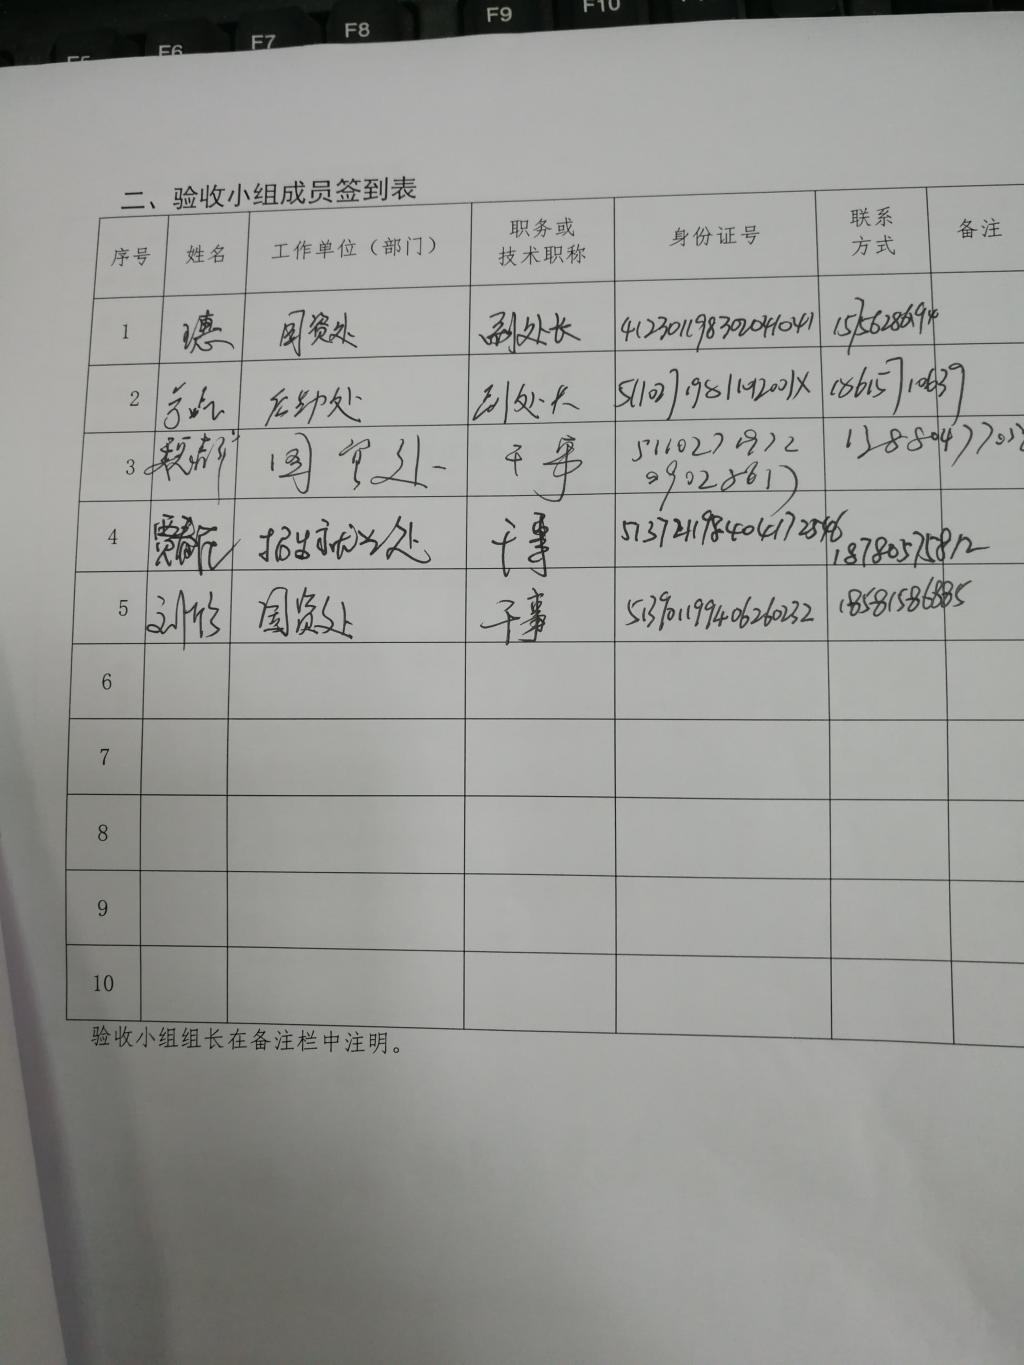 F5 F6 F7 F8 F9 F10
二、验收小组成员签到表
序号 姓名 工作单位（部门） 职务或技术职称 身份证号 联系方式 备注
1 国资处 副处长 412301198302041041
2 后勤处 副处长 51102719811192001X 18615710639
3 国资处 干事 511027197209028617
4 处 干事 18780575812
5 刘 国资处 干事 513901199406260232 18581586885
6
7
8
9
10
验收小组组长在备注栏中注明。